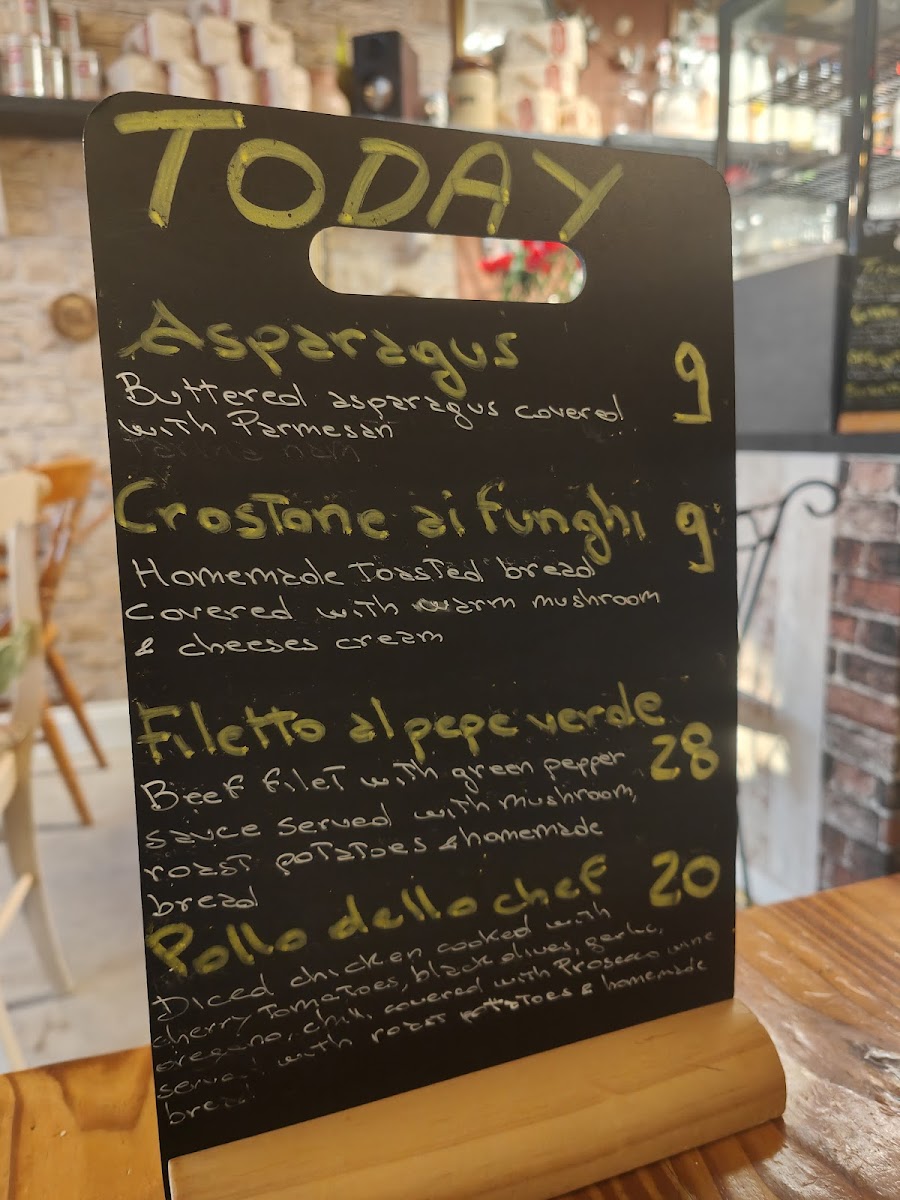 TODAY
Asparagus 9
Buttered asparagus covered
with Parmesan
Crostone ai funghi 9
Homemade toasted bread
covered with warm mushroom
& cheeses cream
Filetto al pepe verde
28
Beef filet with green pepper
sauce served with mushroom,
roast potatoes & homemade
bread
Pollo dello chef 20
Diced chicken cooked with
cherry tomatoes, black olives, garlic,
oregano, chilli, covered with Prosecco wine
served with roast potatoes & homemade
bread